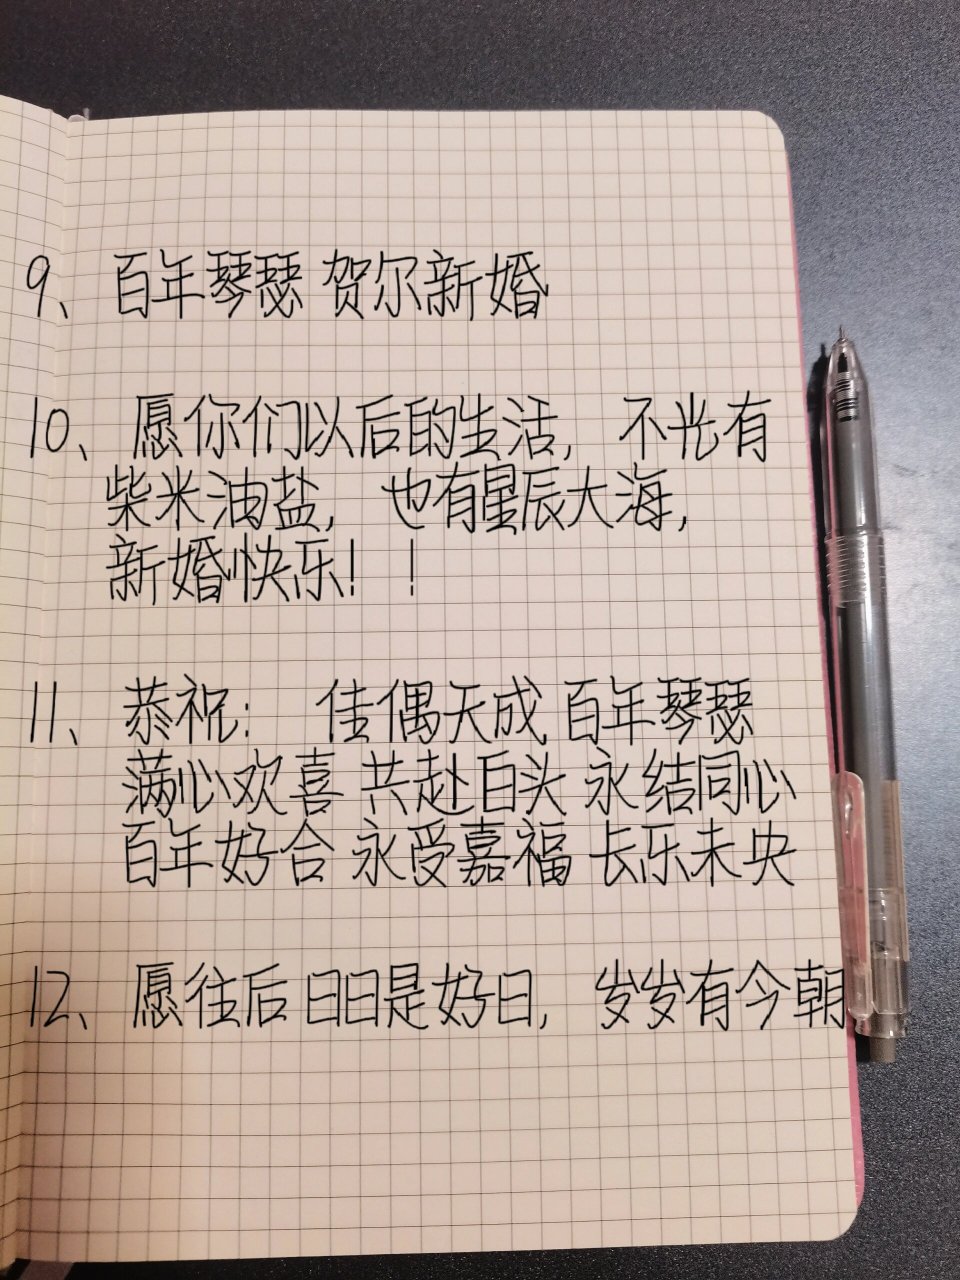 9、百年琴瑟 贺尔新婚
10、愿你们以后的生活，不光有
柴米油盐，也有星辰大海，
新婚快乐！！
11、恭祝：佳偶天成 百年琴瑟
满心欢喜 共赴白头 永结同心
百年好合 永受嘉福 长乐未央
12、愿往后日日是好日，岁岁有今朝